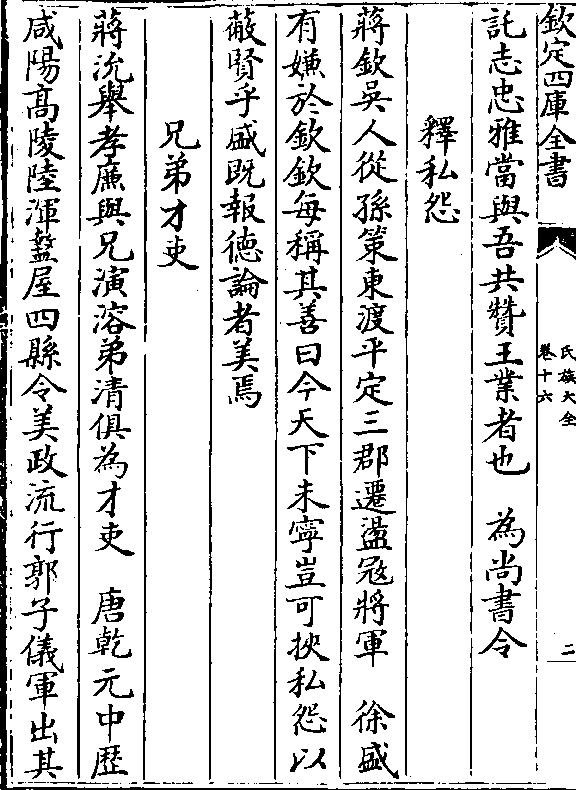 欽定四庫全書
氏族大全
卷十六
二
託志忠雅當與吾共贊王業者也　為尚書令
釋私怨
蔣欽吳人從孫策東渡平定三郡遷盪冦將軍　徐盛
有嫌於欽欽每稱其善曰今天下未寧豈可挾私怨以
蔽賢乎盛既報德論者美焉
兄弟才吏
蔣沇舉孝廉與兄演溶弟清俱為才吏　唐乾元中歴
咸陽髙陵陸渾盩屋四縣令美政流行郭子儀軍出其